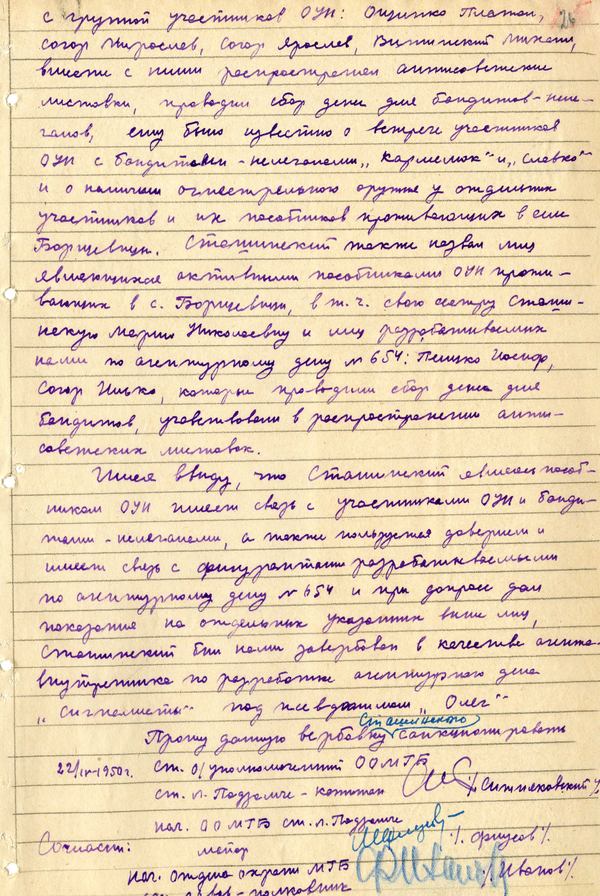 26
с группой участников ОУН: Ощипко Платон,
Согор Мирослав, Согор Ярослав, Витинский Михаил,
вместе с ними распространял антисоветские
листовки, проводил сбор денег для бандитов-неле-
галов, ему было известно о встрече участников
ОУН с бандитами-нелегалами „Кармелюк“ и „Славко“
и о наличии огнестрельного оружия у отдельных
участников и их пособников проживающих в селе
Борщевицы. Сташинский также назвал лиц
являющихся активными пособниками ОУН прожи-
вающих в с. Борщевицы, в т. ч. свою сестру Сташи-
нскую Марию Николаевну и лиц разрабатываемых
нами по агентурному делу № 654: Пешко Иосиф,
Согор Илько, которые проводили сбор денег для
бандитов, участвовали в распространении анти-
советских листовок.
Имея ввиду, что Сташинский являясь пособ-
ником ОУН имеет связь с участниками ОУН и банди-
тами-нелегалами, а также пользуется доверием и
имеет связь с фигурантами разрабатываемыми
по агентурному делу № 654 и при допросе дал
показания на отдельных указанных выше лиц,
Сташинский был нами завербован в качестве агента-
внутренника по разработке агентурного дела
„Сигналисты“ под псевдонимом „Олег“
Сташинского
Прошу данную вербовку санкционировать
22/IV-1950г. ст. о/уполномоченный ООМГБ
ст. Л. Подзамче - капитан /Ситняковский/
нач. ООМГБ ст. Л. Подзамче
Согласен: майор /Фицсов/
нач. отдела охраны МГБ
полковник /Иванов/